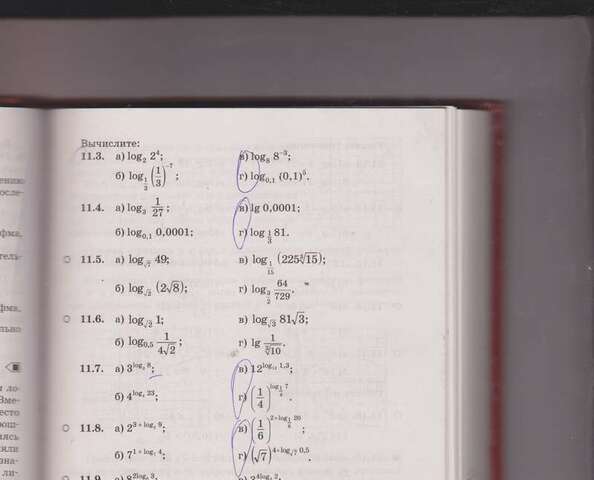 Вычислите:
11.3. а) log₂ 2⁴; в) log₈ 8⁻³;
б) log_{1/3} (1/3)⁻⁷; г) log₀,₁ (0,1)⁵.
11.4. а) log₃ 1/27; в) lg 0,0001;
б) log₀,₁ 0,0001; г) log_{1/3} 81.
11.5. а) log_{√7} 49; в) log_{1/15} (225∛15);
б) log_{√2} (2√8); г) log_{3/2} 64/729.
11.6. а) log_{√2} 1; в) log_{√3} 81√3;
б) log₀,₅ 1/(4√2);
11.7. а) 3^{log₃ 8}; в) 12^{log₁₂ 1,3};
б) 4^{log₄ 23}; г) (1/4)^{log_{1/4} 7}.
11.8. а) 2^{3 + log₂ 9}; в) (1/6)^{2 + log_{1/6} 20};
б) 7^{1 + log₇ 4}; г) (√7)^{4 + log_{√7} 0,5}.
11.9